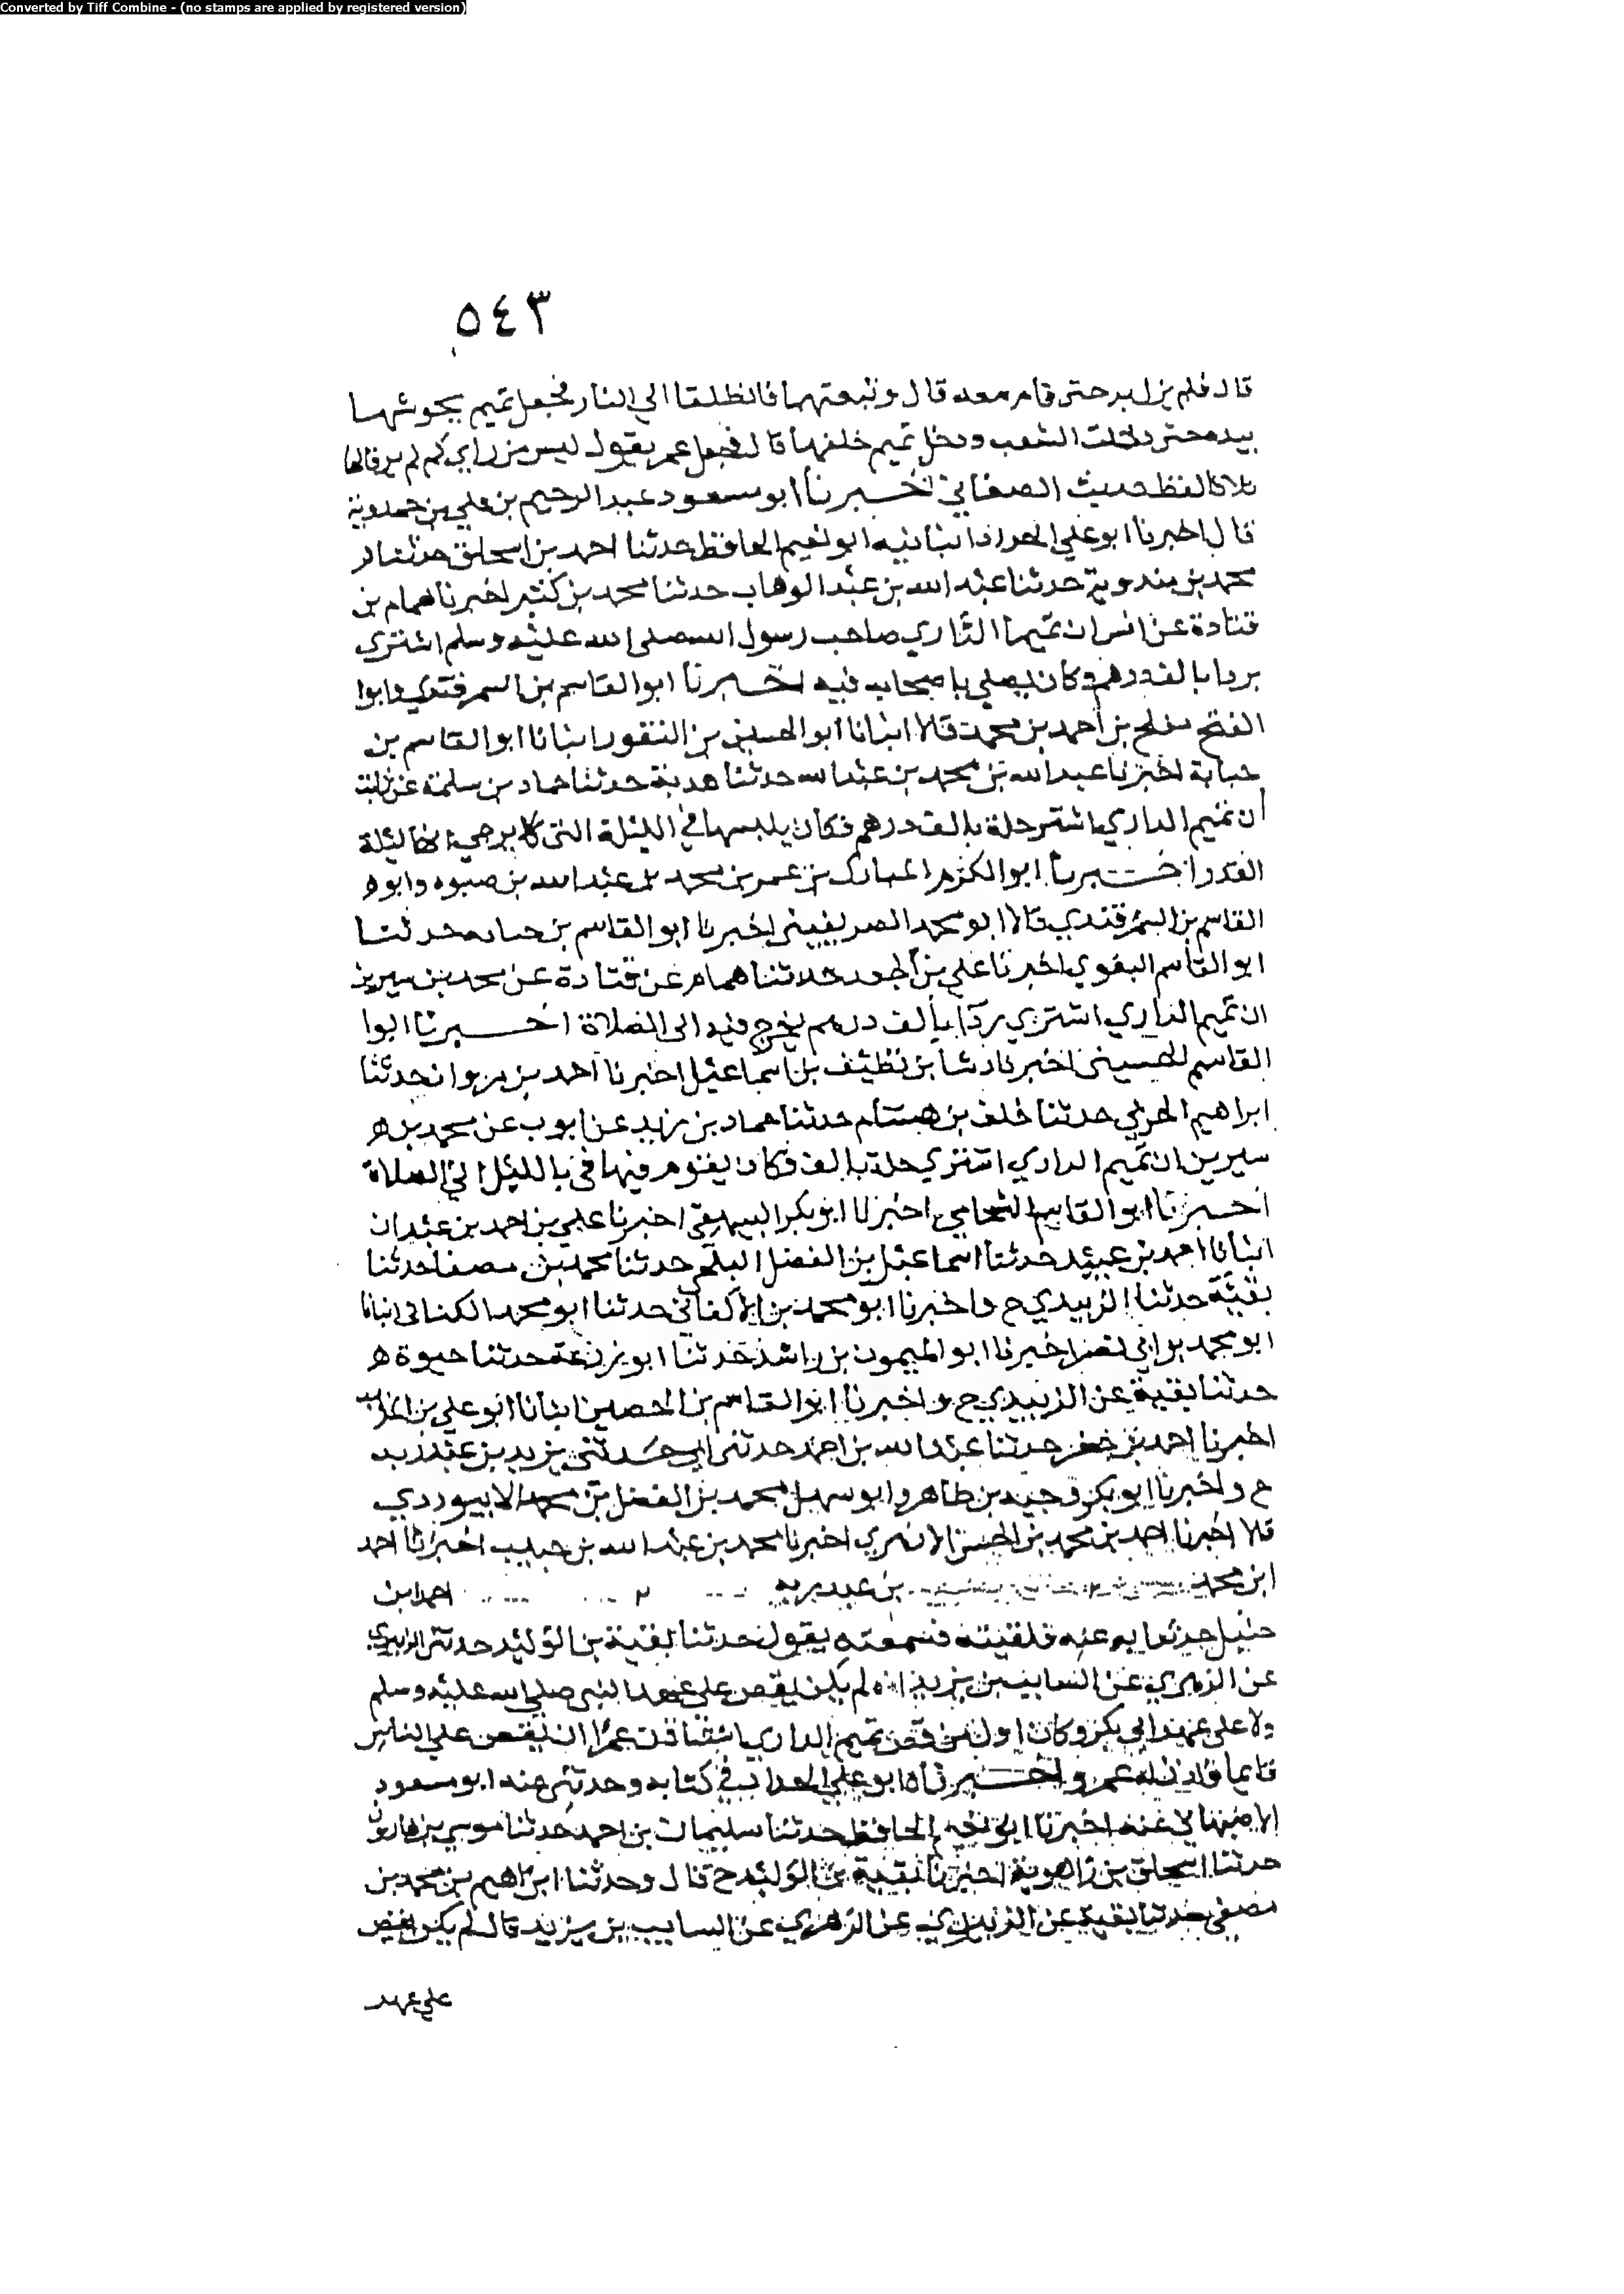 Converted by Tiff Combine - (no stamps are applied by registered version)
٥٤٣
قال فلم يزل به حتى قام معه قال وتبعتهما فانطلقا الي النار فجعل تميم يحوشها
بيده حتى دخلت الشعب ودخل تميم خلفها قال فجعل عمر يقول ليس من راي كم لم ير قالها
ثلاثا لفظ حديث الصغاني اخبرنا ابو مسعود عبد الرحيم بن علي بن حمد
قال اخبرنا ابو علي الحداد انبانيه ابو نعيم الحافظ حدثنا احمد بن اسحاق حدثنا
محمد بن مندوية حدثنا عبد الله بن عبد الوهاب حدثنا محمد بن كثير اخبرنا همام بن
قتادة عن انس ان تميما الداري صاحب رسول الله صلى الله عليه وسلم اشترى
بردا بالف درهم وكان يصلي باصحابه فيه اخبرنا ابو القاسم بن السمرقندي وابوا
الفتح مفلح بن احمد بن محمد قالا انبانا ابو الحسين بن النقور انبانا ابو القاسم بن
حبابة اخبرنا عبد الله بن محمد بن عبد الله حدثنا هدبة حدثنا حماد بن سلمة عن ثابت
ان تميم الداري اشتر حلة بالف درهم فكان يلبسها في الليلة التي كا يرجي انها ليلة
القدر اخبرنا ابو الكرم المبارك بن عمر بن محمد بن عبد الله بن صبوه وابو ه
القاسم بن السمرقندي قالا ابو محمد الصريفيني اخبرنا ابو القاسم بن حبابه حدثنا
ابو القاسم البغوي اخبرنا علي بن الجعد حدثنا همام عن قتادة عن محمد بن سيرين
ان تميم الداري اشتري ردا بالف درهم يخرج فيه الى الصلاة اخبرنا ابوا
القاسم الحسيني اخبرنا رشا بن نظيف بن اسماعيل اخبرنا احمد بن مروان حدثنا
ابراهيم الحربي حدثنا خلف بن هشام حدثنا حماد بن زيد عن ايوب عن محمد بن ه
سيرين ان تميم الداري اشتري حلة بالف فكان يقوم فيها في بالليل الي الصلاة
اخبرنا ابو القاسم الشحامي اخبرنا ابو بكر البيهقي اخبرنا علي بن احمد بن عبدان
انبانا احمد بن عبيد حدثنا اسماعيل بن الفضل البلخي حدثنا محمد بن مصفا حدثنا
بقية حدثنا الزبيدي ح واخبرنا ابو محمد بن الاكفاني حدثنا ابو محمد الكناني انبانا
ابو محمد بن ابي نصر اخبرنا ابو الميمون بن راشد حدثنا ابو زرعة حدثنا حيوة ه
حدثنا بقية عن الزبيدي ح واخبرنا ابو القاسم بن الحصين انبانا ابو علي بن المذهب
اخبرنا احمد بن جعفر حدثنا عبد الله بن احمد حدثني ابي حدثني يزيد بن عبد ربه
ح واخبرنا ابو بكر وجيه بن طاهر وابو سهل محمد بن الفضل بن محمد الابيوردي
قالا اخبرنا احمد بن محمد بن الحسن الازهري اخبرنا محمد بن عبد الله بن حبيب اخبرنا احمد
ابن محمد بن عبد ربه احمد ابن
حنبل حدثنا به عنه فلقيته فسمعته يقول حدثنا بقية بن الوليد حدثني الزبيدي
عن الزهري عن السايب بن يزيد انه لم يكن يقص على عهد النبي صلي الله عليه وسلم
ولا على عهد ابي بكر وكان اول من قص تميم الداري استاذن عمرا ان يقص علي الناس
قايما فاذن له عمر واخبرناه ابو علي الحداد في كتابه وحدثني عنه ابو مسعود
الاصبهاني عنه اخبرنا ابو نعيم الحافظ حدثنا سليمان بن احمد حدثنا موسي بن هارون
حدثنا اسحاق بن راهوية اخبرنا بقية بن الوليد ح قال وحدثنا ابراهيم بن محمد بن
مصفي حدثنا بقية عن الزبيدي عن الزهري عن السايب بن يزيد قال لم يكن يقص
علي عهد